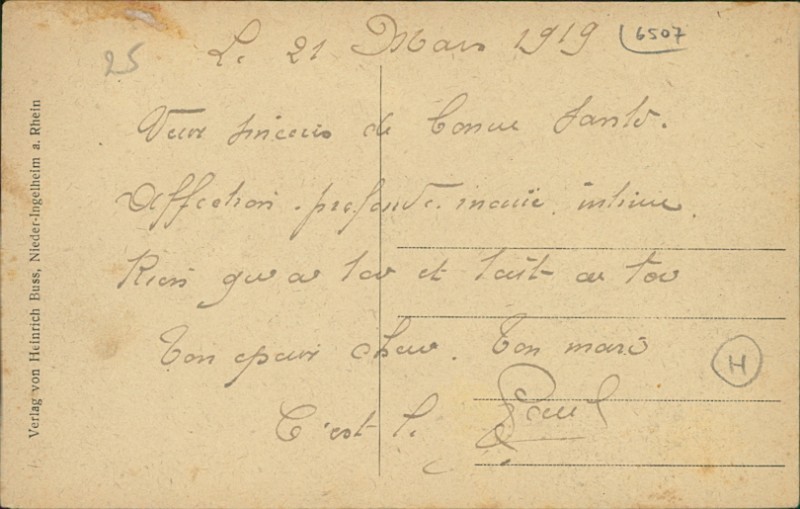 25
Le 21 Mars 1919
6507
Vœux sincères de bonne santé.
Affection profonde inouïe intime.
Rien que a toi et tout a toi
Ton epoux cheri. Ton mari
C'est le Paul
H
Verlag von Heinrich Buss, Nieder-Ingelheim a. Rhein